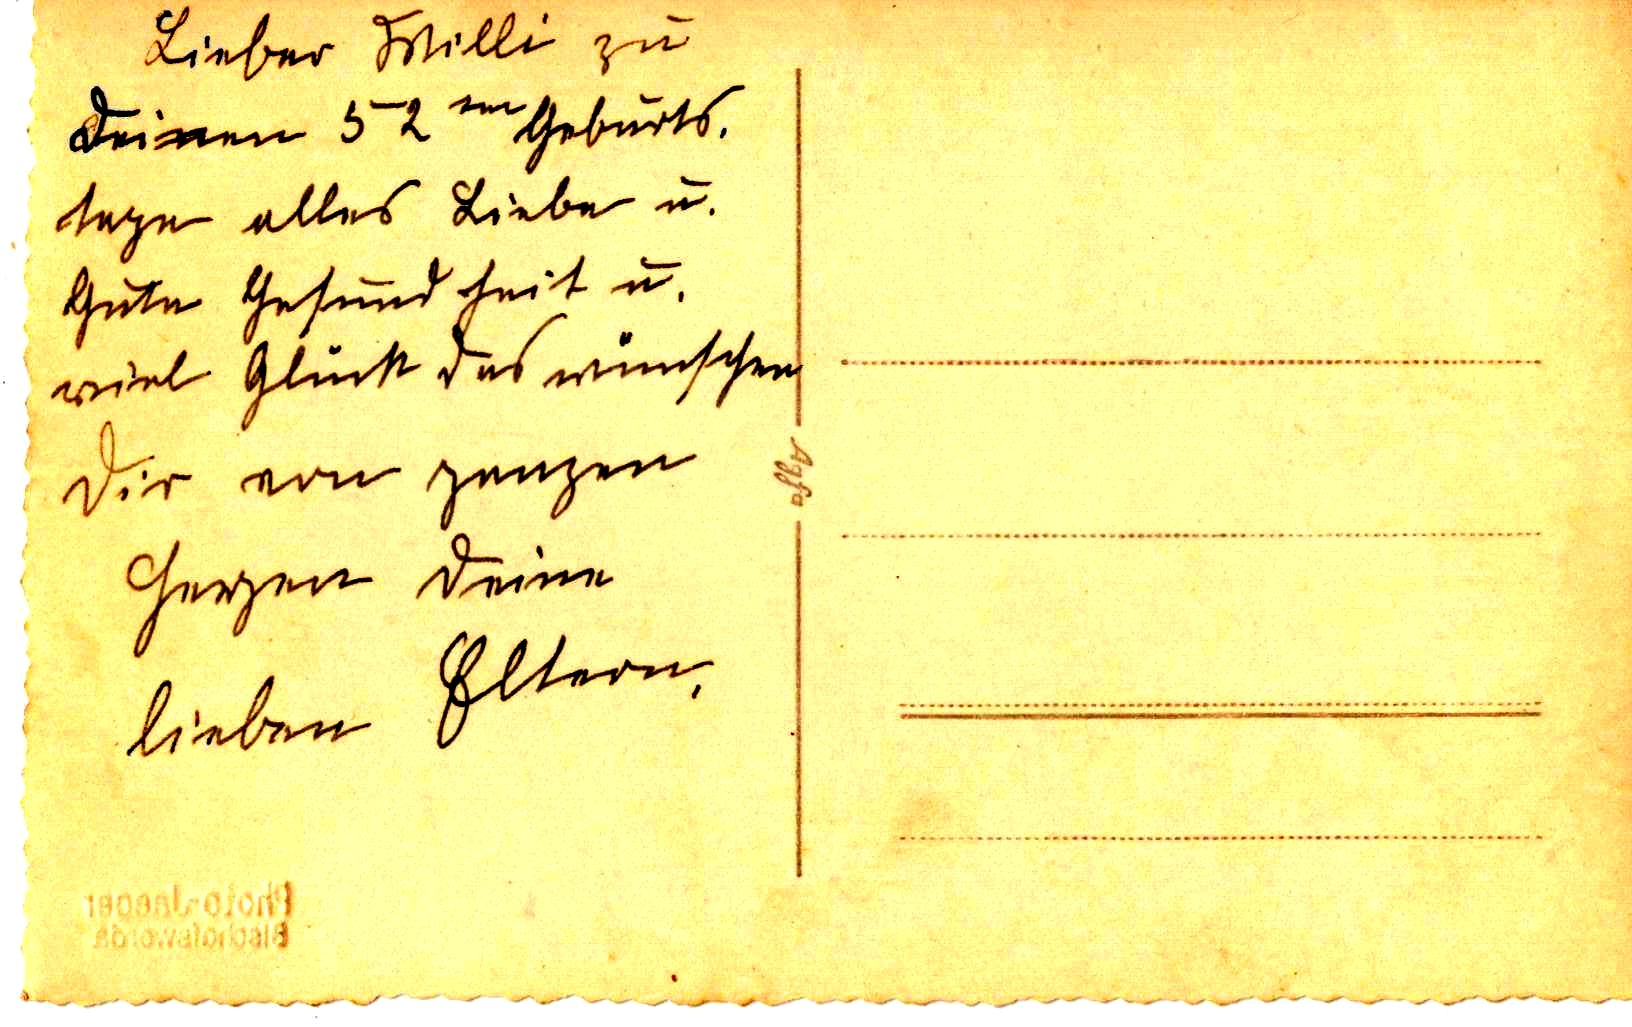 Lieber Willi zu
Deinen 52 ten Geburts.
tage alles Liebe u.
Gute Gesundheit u.
viel Glück das wünschen
Dir von ganzen
Herzen Deine
lieben Eltern.
Agfa
Photo-Jaeger
Bischofswerda